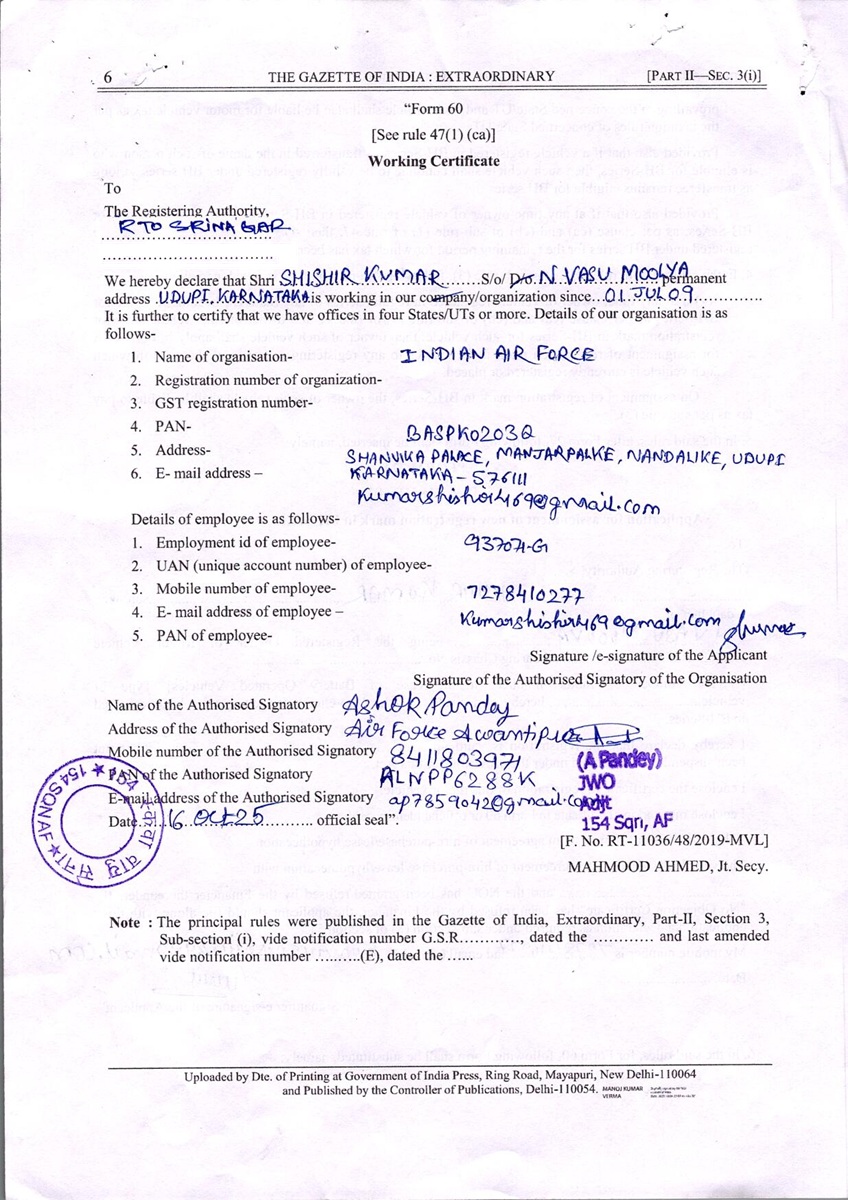 6 THE GAZETTE OF INDIA : EXTRAORDINARY [PART II—SEC. 3(i)]
"Form 60
[See rule 47(1) (ca)]
Working Certificate
To
The Registering Authority,
RTO SRINAGAR
We hereby declare that Shri SHISHIR KUMAR S/o/ D/o. N VASU MOOLYA permanent
address UDUPI, KARNATAKA is working in our company/organization since 01 JUL 09
It is further to certify that we have offices in four States/UTs or more. Details of our organisation is as
follows-
1. Name of organisation- INDIAN AIR FORCE
2. Registration number of organization-
3. GST registration number-
4. PAN- BASPK0203Q
5. Address- SHANVIKA PALACE, MANJARPALKE, NANDALIKE, UDUPI
KARNATAKA - 576111
6. E- mail address – kumarshishir469@gmail.com
Details of employee is as follows-
1. Employment id of employee- 937071-G
2. UAN (unique account number) of employee-
3. Mobile number of employee- 7278410277
4. E- mail address of employee – kumarshishir469@gmail.com
5. PAN of employee-
Signature /e-signature of the Applicant
Signature of the Authorised Signatory of the Organisation
Name of the Authorised Signatory Ashok Pandey
Address of the Authorised Signatory Air Force Awantipur
Mobile number of the Authorised Signatory 8411803971
PAN of the Authorised Signatory ALNPP6288K
E-mail address of the Authorised Signatory ap7859042@gmail.com
Date 16 Oct 25 official seal".
(A Pandey)
JWO
Adjt
154 Sqn, AF
154 SQN AF
[F. No. RT-11036/48/2019-MVL]
MAHMOOD AHMED, Jt. Secy.
Note : The principal rules were published in the Gazette of India, Extraordinary, Part-II, Section 3,
Sub-section (i), vide notification number G.S.R..........., dated the ............ and last amended
vide notification number ..........(E), dated the ......
Uploaded by Dte. of Printing at Government of India Press, Ring Road, Mayapuri, New Delhi-110064
and Published by the Controller of Publications, Delhi-110054. MANOJ KUMAR
VERMA